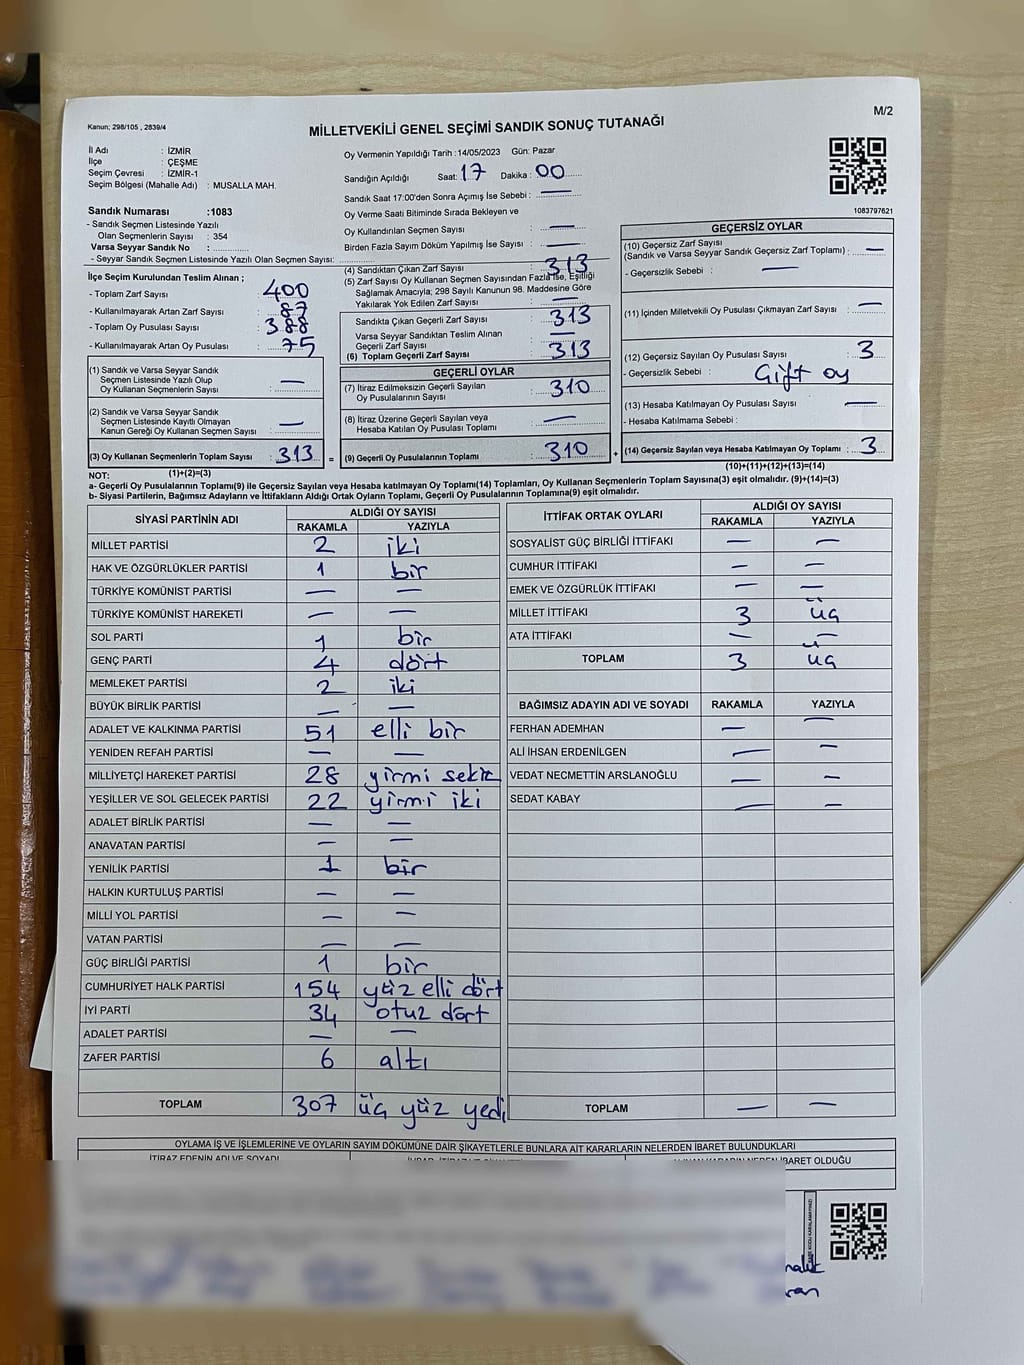 Kanun; 298/105 , 2839/4
M/2
MİLLETVEKİLİ GENEL SEÇİMİ SANDIK SONUÇ TUTANAĞI
İl Adı : İZMİR
İlçe : ÇEŞME
Seçim Çevresi : İZMİR-1
Seçim Bölgesi (Mahalle Adı) : MUSALLA MAH.
Oy Vermenin Yapıldığı Tarih :14/05/2023 Gün: Pazar
Sandığın Açıldığı Saat: 17 Dakika : 00
Sandık Saat 17:00'den Sonra Açımış İse Sebebi : —
Oy Verme Saati Bitiminde Sırada Bekleyen ve
Oy Kullandırılan Seçmen Sayısı : —
Birden Fazla Sayım Döküm Yapılmış İse Sayısı : —
1083797621
Sandık Numarası :1083
- Sandık Seçmen Listesinde Yazılı
Olan Seçmenlerin Sayısı : 354
Varsa Seyyar Sandık No :
- Seyyar Sandık Seçmen Listesinde Yazılı Olan Seçmen Sayısı:
İlçe Seçim Kurulundan Teslim Alınan ;
- Toplam Zarf Sayısı : 400
- Kullanılmayarak Artan Zarf Sayısı : 87
- Toplam Oy Pusulası Sayısı : 388
- Kullanılmayarak Artan Oy Pusulası : 75
(1) Sandık ve Varsa Seyyar Sandık
Seçmen Listesinde Yazılı Olup
Oy Kullanan Seçmenlerin Sayısı : —
(2) Sandık ve Varsa Seyyar Sandık
Seçmen Listesinde Kayıtlı Olmayan
Kanun Gereği Oy Kullanan Seçmen Sayısı : —
(3) Oy Kullanan Seçmenlerin Toplam Sayısı : 313 =
(1)+(2)=(3)
(4) Sandıktan Çıkan Zarf Sayısı : 313
(5) Zarf Sayısı Oy Kullanan Seçmen Sayısından Fazla İse, Eşitliği
Sağlamak Amacıyla; 298 Sayılı Kanunun 98. Maddesine Göre
Yakılarak Yok Edilen Zarf Sayısı : —
Sandıkta Çıkan Geçerli Zarf Sayısı : 313
Varsa Seyyar Sandıktan Teslim Alınan
Geçerli Zarf Sayısı : —
(6) Toplam Geçerli Zarf Sayısı : 313
GEÇERLİ OYLAR
(7) İtiraz Edilmeksizin Geçerli Sayılan
Oy Pusulalarının Sayısı : 310
(8) İtiraz Üzerine Geçerli Sayılan veya
Hesaba Katılan Oy Pusulası Toplamı : —
(9) Geçerli Oy Pusulalarının Toplamı : 310 +
GEÇERSİZ OYLAR
(10) Geçersiz Zarf Sayısı
(Sandık ve Varsa Seyyar Sandık Geçersiz Zarf Toplamı) : —
- Geçersizlik Sebebi : —
(11) İçinden Milletvekili Oy Pusulası Çıkmayan Zarf Sayısı : —
(12) Geçersiz Sayılan Oy Pusulası Sayısı : 3
- Geçersizlik Sebebi : Çift oy
(13) Hesaba Katılmayan Oy Pusulası Sayısı : —
- Hesaba Katılmama Sebebi :
(14) Geçersiz Sayılan veya Hesaba Katılmayan Oy Toplamı : 3
(10)+(11)+(12)+(13)=(14)
NOT:
a- Geçerli Oy Pusulalarının Toplamı(9) ile Geçersiz Sayılan veya Hesaba Katılmayan Oy Toplamı(14) Toplamları, Oy Kullanan Seçmenlerin Toplam Sayısına(3) eşit olmalıdır. (9)+(14)=(3)
b- Siyasi Partilerin, Bağımsız Adayların ve İttifakların Aldığı Ortak Oyların Toplamı, Geçerli Oy Pusulalarının Toplamına(9) eşit olmalıdır.
SİYASİ PARTİNİN ADI ALDIĞI OY SAYISI
RAKAMLA YAZIYLA
MİLLET PARTİSİ 2 iki
HAK VE ÖZGÜRLÜKLER PARTİSİ 1 bir
TÜRKİYE KOMÜNİST PARTİSİ — —
TÜRKİYE KOMÜNİST HAREKETİ — —
SOL PARTİ 1 bir
GENÇ PARTİ 4 dört
MEMLEKET PARTİSİ 2 iki
BÜYÜK BİRLİK PARTİSİ — —
ADALET VE KALKINMA PARTİSİ 51 elli bir
YENİDEN REFAH PARTİSİ — —
MİLLİYETÇİ HAREKET PARTİSİ 28 yirmi sekiz
YEŞİLLER VE SOL GELECEK PARTİSİ 22 yirmi iki
ADALET BİRLİK PARTİSİ — —
ANAVATAN PARTİSİ — —
YENİLİK PARTİSİ 1 bir
HALKIN KURTULUŞ PARTİSİ — —
MİLLİ YOL PARTİSİ — —
VATAN PARTİSİ — —
GÜÇ BİRLİĞİ PARTİSİ 1 bir
CUMHURİYET HALK PARTİSİ 154 yüz elli dört
İYİ PARTİ 34 otuz dört
ADALET PARTİSİ — —
ZAFER PARTİSİ 6 altı
TOPLAM 307 üç yüz yedi
İTTİFAK ORTAK OYLARI ALDIĞI OY SAYISI
RAKAMLA YAZIYLA
SOSYALİST GÜÇ BİRLİĞİ İTTİFAKI — —
CUMHUR İTTİFAKI — —
EMEK VE ÖZGÜRLÜK İTTİFAKI — —
MİLLET İTTİFAKI 3 üç
ATA İTTİFAKI — —
TOPLAM 3 üç
BAĞIMSIZ ADAYIN ADI VE SOYADI RAKAMLA YAZIYLA
FERHAN ADEMHAN — —
ALİ İHSAN ERDENİLGEN — —
VEDAT NECMETTİN ARSLANOĞLU — —
SEDAT KABAY — —
TOPLAM — —
OYLAMA İŞ VE İŞLEMLERİNE VE OYLARIN SAYIM DÖKÜMÜNE DAİR ŞİKAYETLERLE BUNLARA AİT KARARLARIN NELERDEN İBARET BULUNDUKLARI
İTİRAZ EDENİN ADI VE SOYADI
İBARET OLDUĞU